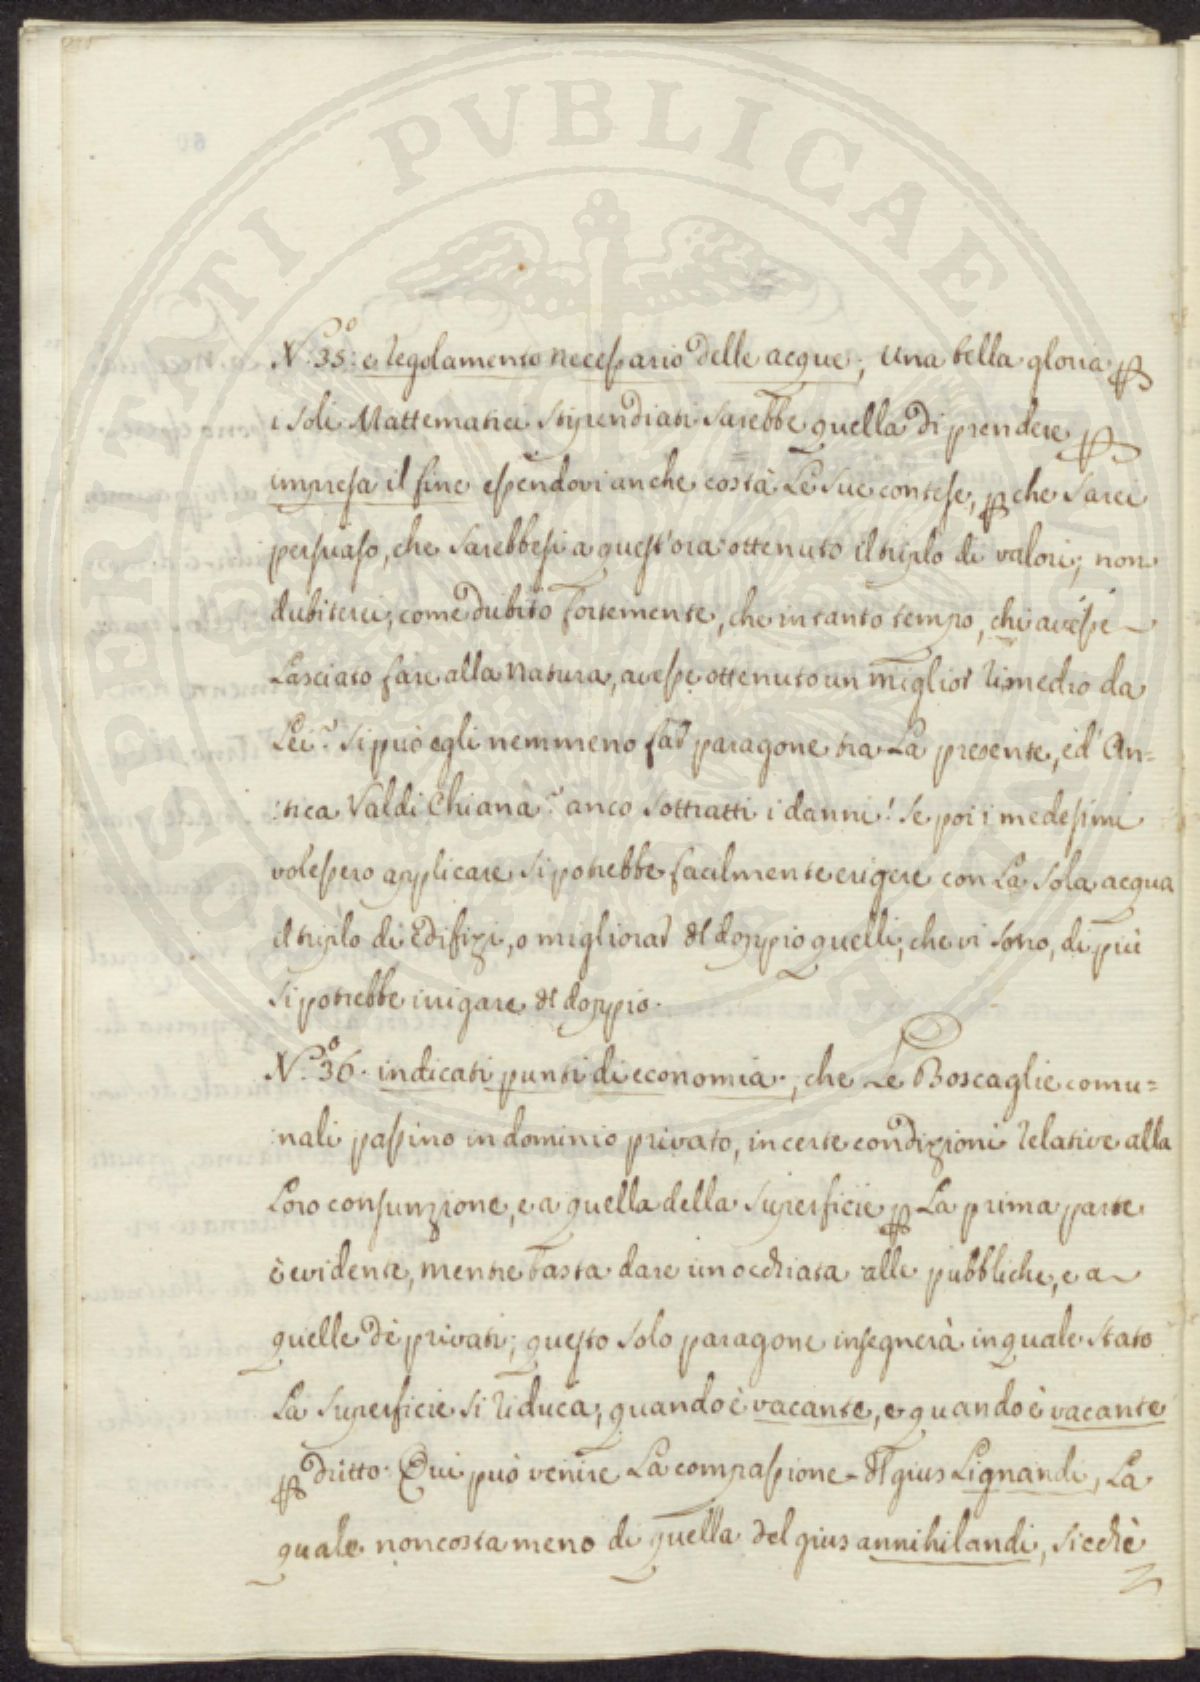 PROSPERITATI PVBLICAE AVGENDAE
N.° 35: e regolamento necessario delle acque; una bella gloria p
i soli Mattematici stipendiati sarebbe quella di prendere p
impresa il fine essendovi anche costà Le sue contese, pche sarei
persuaso, che sarebbesi a quest'ora ottenuto il triplo di valori; non
dubiterei, come dubito fortemente, che in tanto tempo, chi avesse
Lasciato fare alla Natura, avesse ottenuto un miglior rimedio da
Lei? si può egli nemmeno far paragone tra La presente, ed An=
:tica Valdi Chiana? anco sottratti i danni! se poi i medesimi
volessero applicare si potrebbe facilmente erigere con La sola acqua
il triplo di Edifizi, o migliorar del doppio quelli, che vi sono, di più
si potrebbe irrigare del doppio.
N.° 36. indicati punti di economia., che Le Boscaglie comu=
:nali passino in dominio privato, in certe condizioni relative alla
Loro consunzione, e a quella della superficie p La prima parte
è evidente, mentre basta dare un occhiata alle pubbliche, e a
quelle dè privati; questo solo paragone insegnerà in quale stato
La superficie si riduca, quando è vacante, e quando è vacante
p dritto. Qui può venire La compassione del gius Lignandi, La
quale non costa meno di quella del gius annihilandi, sicchè